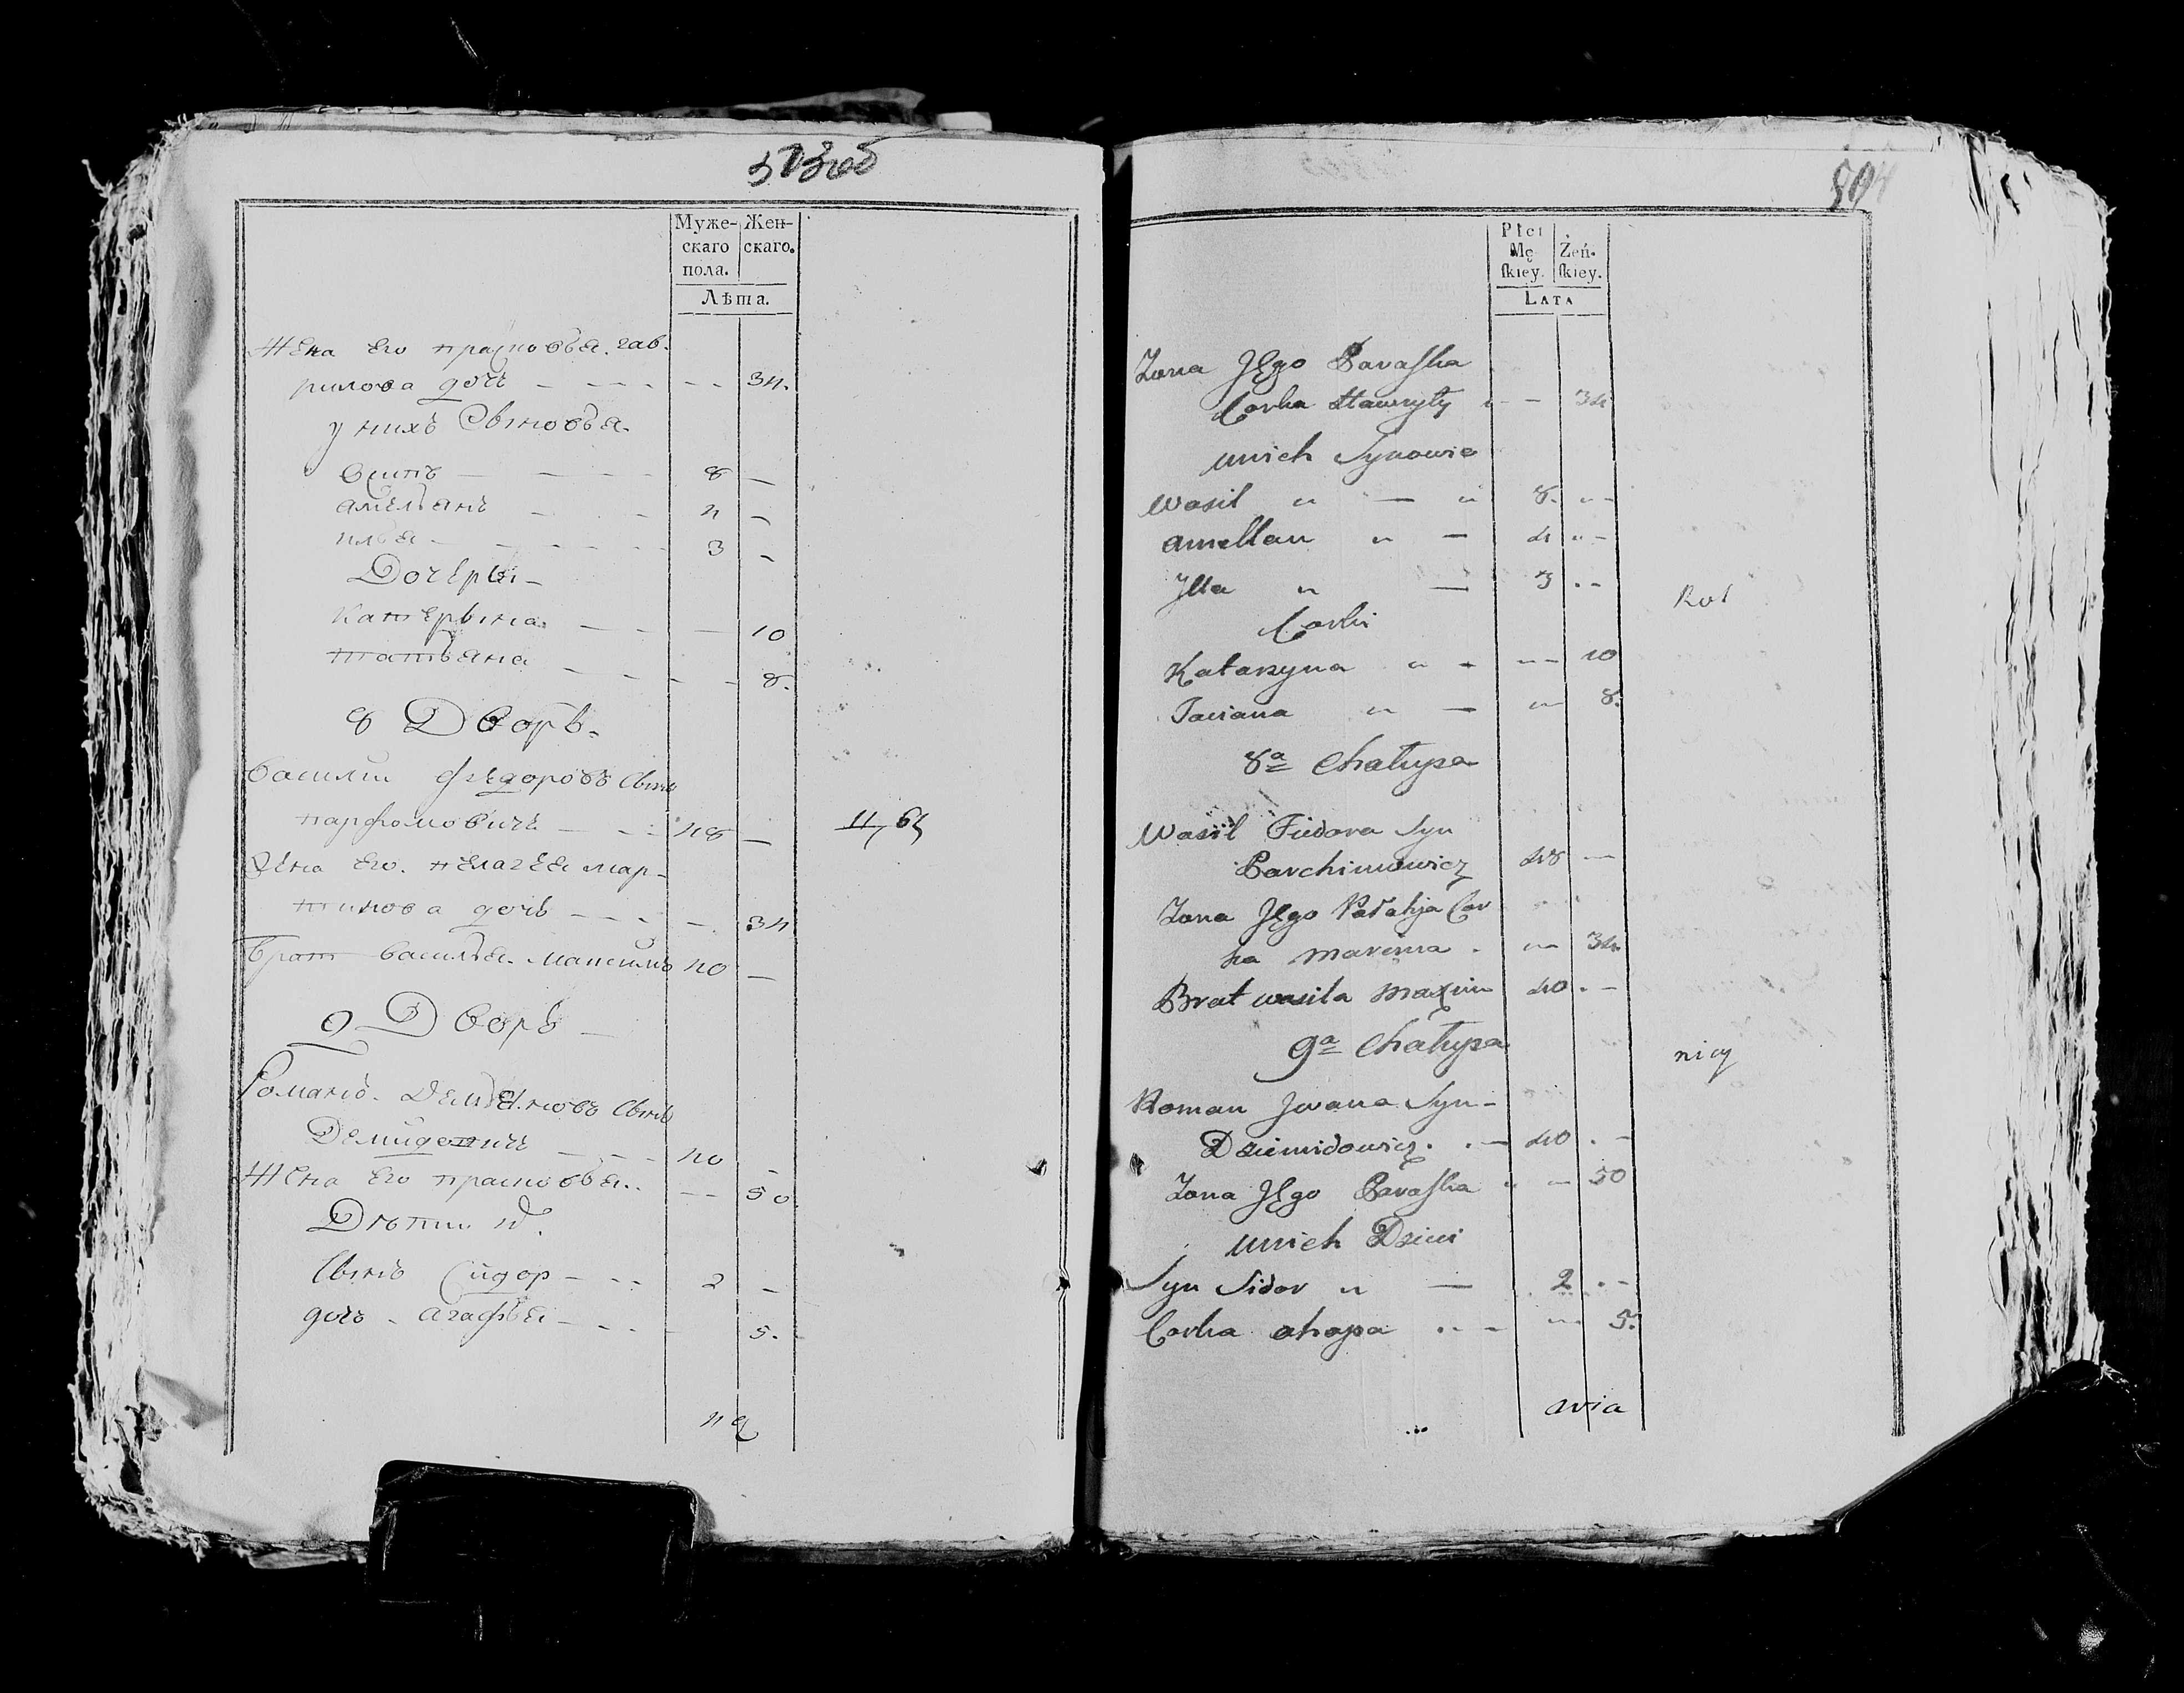 503об
Муже- Жен-
скаго скаго.
пола.
Лѣта.
Жена Его прасковья гав-
рилова дочь 34.
у нихъ Сыновья
Осипъ 8
амельянъ 4
илья 3
Дочерьи
Катерына 10
татьяна 8.
8 Дворъ.
Василии федоровъ Сынъ
парфомовичъ 48
Жена Его. пелагея мар-
тинова дочь 34
Братъ васильья Максимъ 40
9 Дворъ
Романъ Сынъ
Демидовичъ 40
Жена Его прасковья 50
Дѣти
Сынъ Сидор 2
дочь агафья 5.
504
Płci
Mę Żeń-
skiey. skiey.
Lata
Zona Jego Paraska
Corka Hawryły 34
unich Synowie
Wasil 8.
amellan 4
Jlla 3
Rot
Corki
Katarzyna 10
Taciana 8.
8a Chałupa
Wasil Fiedora Syn
Parchimowicz 48
Zona Jego Pałahja Cor
ka marcina 34.
Brat wasila Maxim 40
9a Chałupa
nicy
Roman Jwana Syn
Dziemidowicz. 40
Zona Jego Paraska 50
unich Dzieci
Syn Sidor 2
Corka ahapa 5.